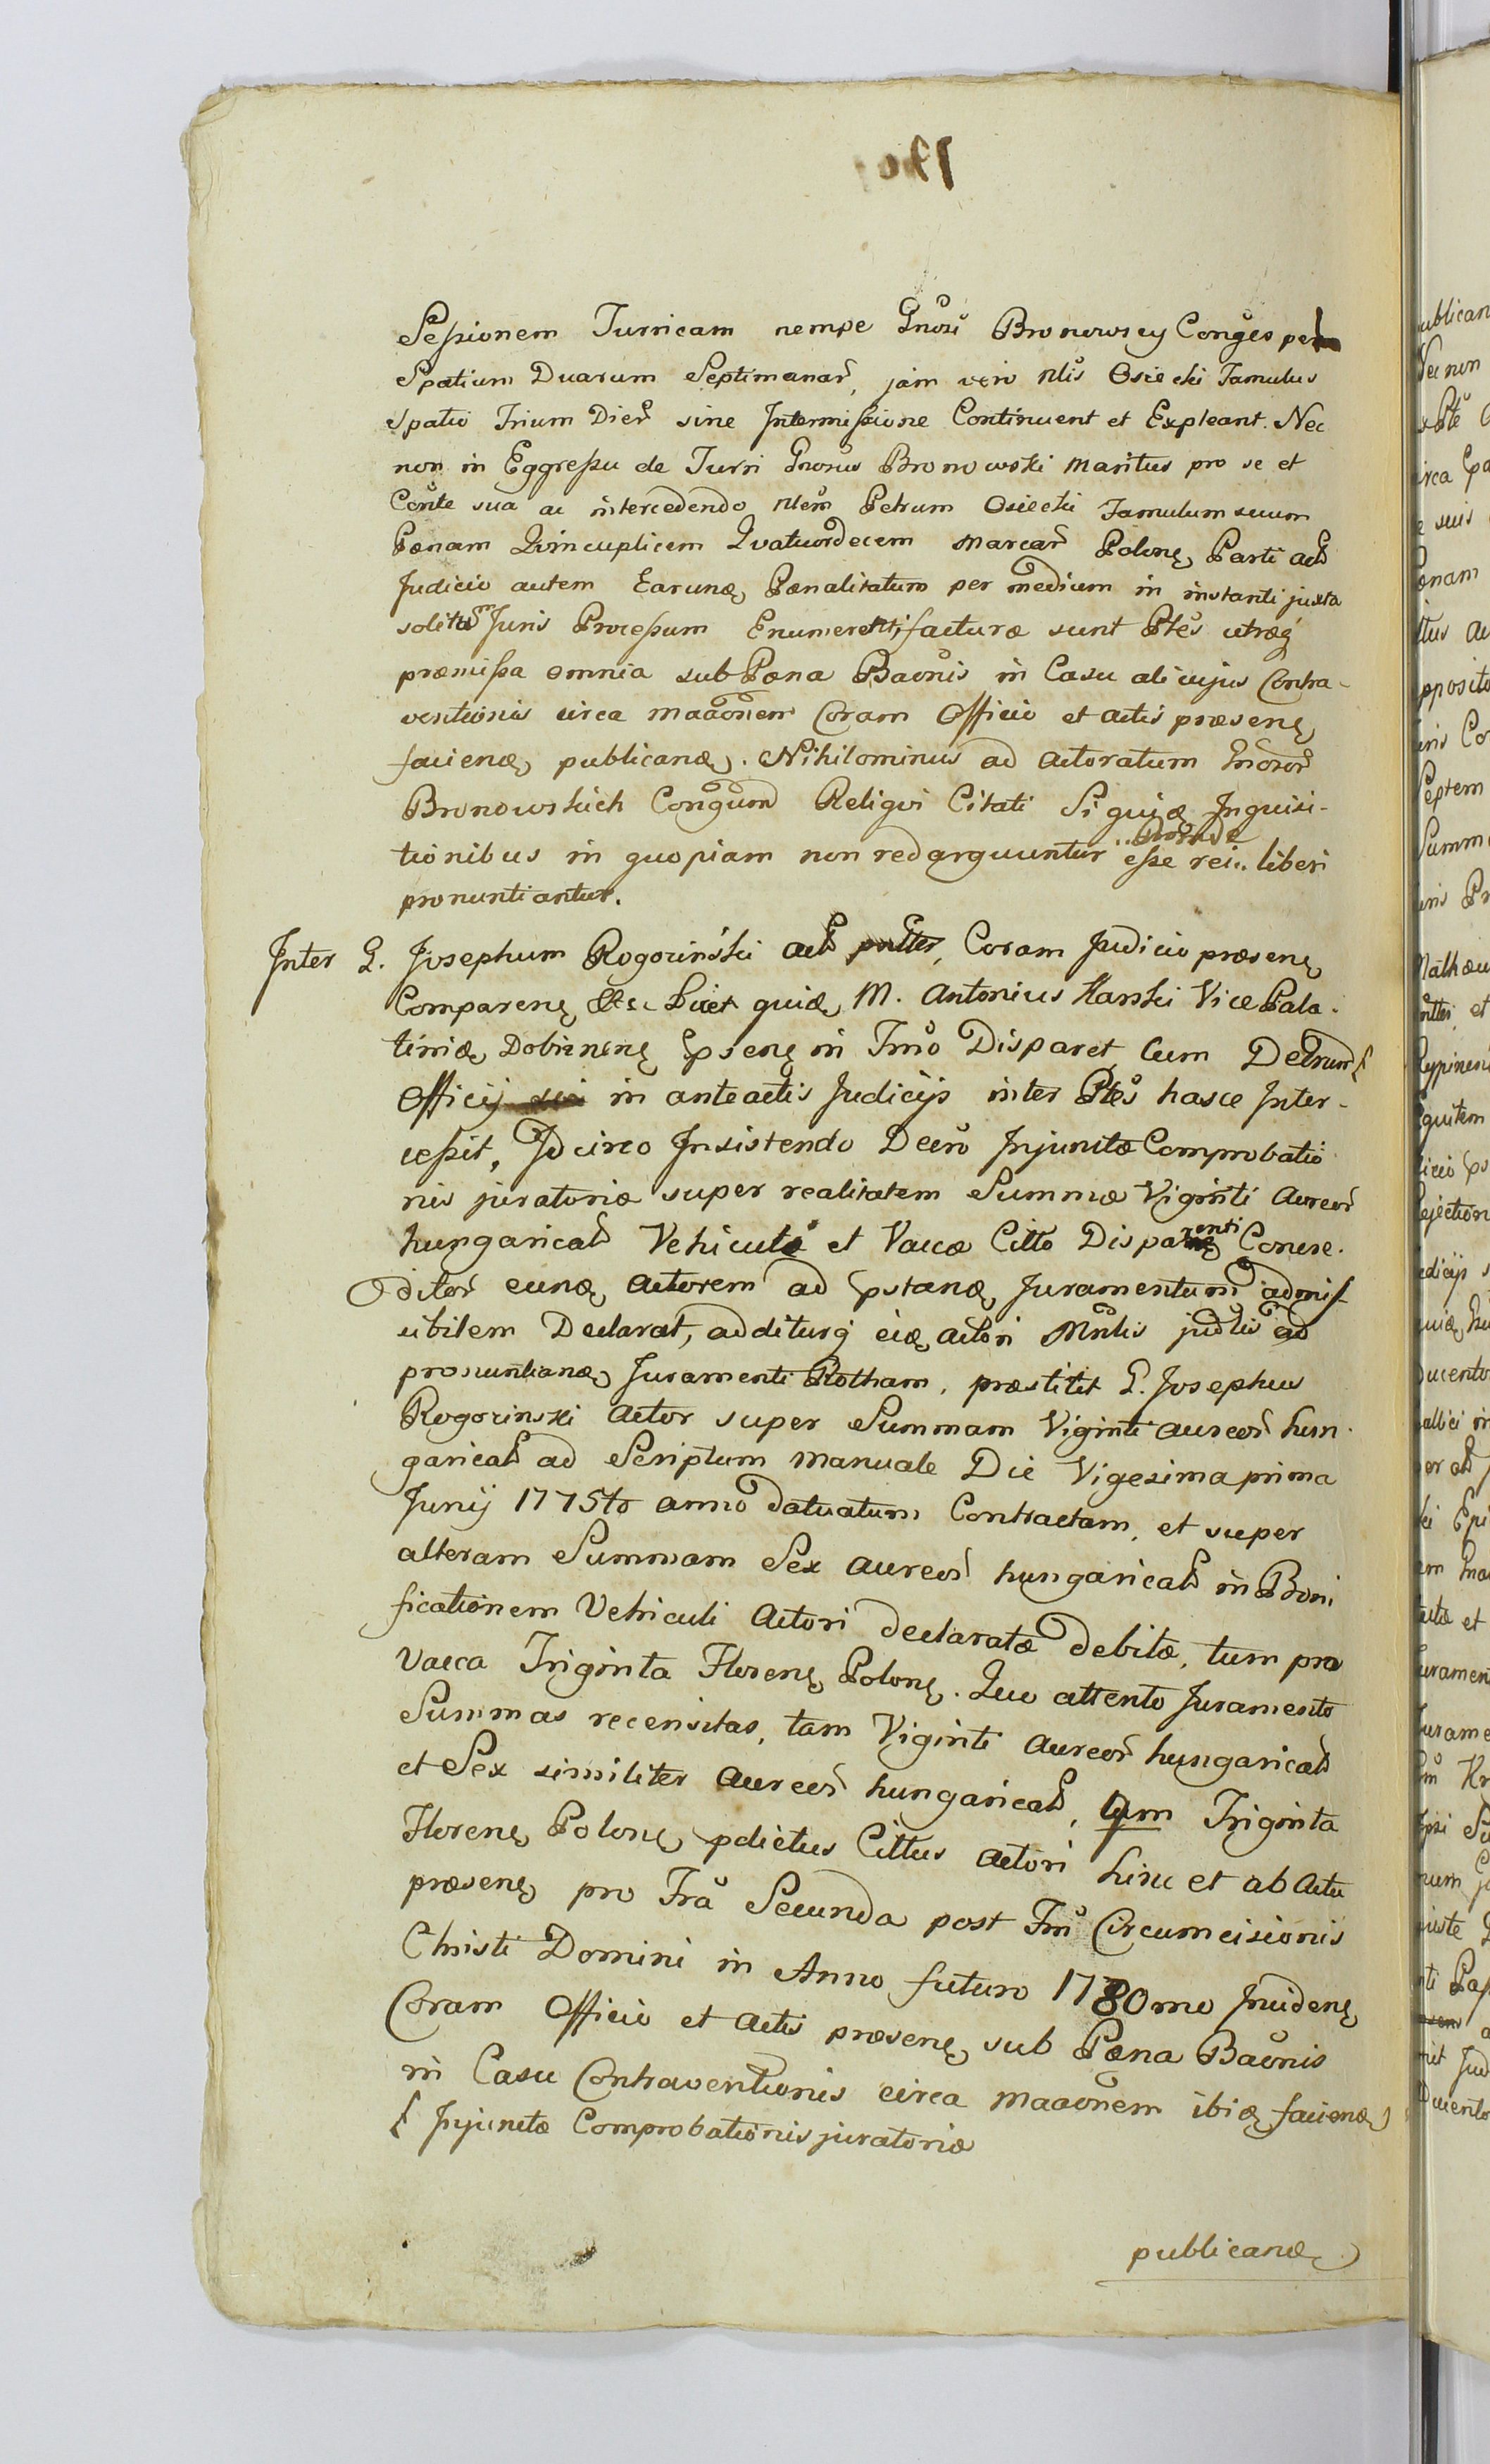 Sessionem Turricam nempe Gnosi Bronowscy Conges per
Spatium Duarum Septimanar, jam vero Nlis Osiecki Famulus
Spatio Trium Dier sine Intermissione Continuent et Expleant. Nec
non in Eggressu de Turri Gnosus Bronowski Maritus pro se et
Conte sua ac intercedendo Nlem Petrum Osiecki Famulum suum
Pœnam Quincuplicem Quatuordecem Marcar Polonę Parti
Judicio autem Earundę Pœnalitatum per medium in instanti juxta
solitum Juris Processum facturæ sunt Ptes utræq
præmissa omnia sub Pœna Baonis in Casu alicujus Contra-
ventionis circa Maaonem Coram Officio et Actis præsenę
faciendę publicandę. Nihilominus ad Actoratum Gnosor
Bronowskich Congum Religvi Citati Siquidę Inquisi-
tionibus in quopiam non redarguuntur esse rei liberi
pronuntiantur.
Inter G. Josephum Rogozinski Coram Judicio præsenę
Comparenę Etsi Licet quidę M. Antonius Karski Vice Pala-
tinidę Dobrinenę in Tmo Disparet Cum Decrum
Officij in anteactis Judicijs inter Ptes hasce Inter-
cessit, Idcirco Insistendo Decro Injunctæ Comprobatio
nis juratoriæ super realitatem Summæ Viginti Aureor
hungarical Vehiculi et Vacca Citto Disparenti
ditor eundę Actorem ad pstandę Juramentum admis
sibilem Declarat, additurq eidę Actori Mnlis judlis ad
pronuntiandę Juramenti Rotham, præstitit G. Josephus
Rogozinski Actor super Summam Viginti Aureor hun-
garical ad Scriptum Manuale Die Vigesima prima
Junij 1775to anno datuatum Contractam, et super
alteram Summam Sex Aureor hungarical in Boni
ficationem Vehiculi Actori declaratæ debitæ, tum pro
Vacca Triginta Florenę Polonę. Quo attento Juramento
Summas recensitas, tam Viginti Aureor hungarical
et Sex similiter Aureor hungarical, qm Triginta
Florenę Polonę pdictus Cittus Actori hinc et ab Actu
præsenę pro Fra Secunda post Fm Circumcisionis
Christi Domini in Anno futuro 1780mo Incidenę
Coram Officio et Actis præsenę sub Pœna Baonis
in Casu Contraventionis circa Maaonem ibidę faciendę
Injunctæ Comprobationis juratoriæ
publicandę